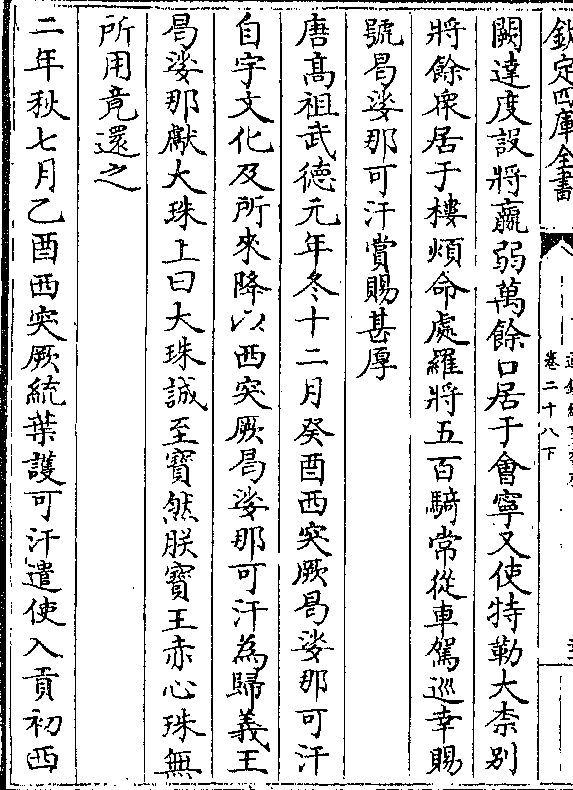 欽定四庫全書
卷二十八下
闕達度設將羸弱萬餘口居于會寧又使特勒大柰別
將餘衆居于樓煩命處羅將五百騎常從車駕巡幸賜
號曷娑那可汗賞賜甚厚
唐髙祖武德元年冬十二月癸酉西突厥曷娑那可汗
自宇文化及所來降以西突厥曷娑那可汗為歸義王
曷娑那獻大珠上曰大珠誠至寳然朕寳王赤心珠無
所用竟還之
二年秋七月乙酉西突厥統葉護可汗遣使入貢初西